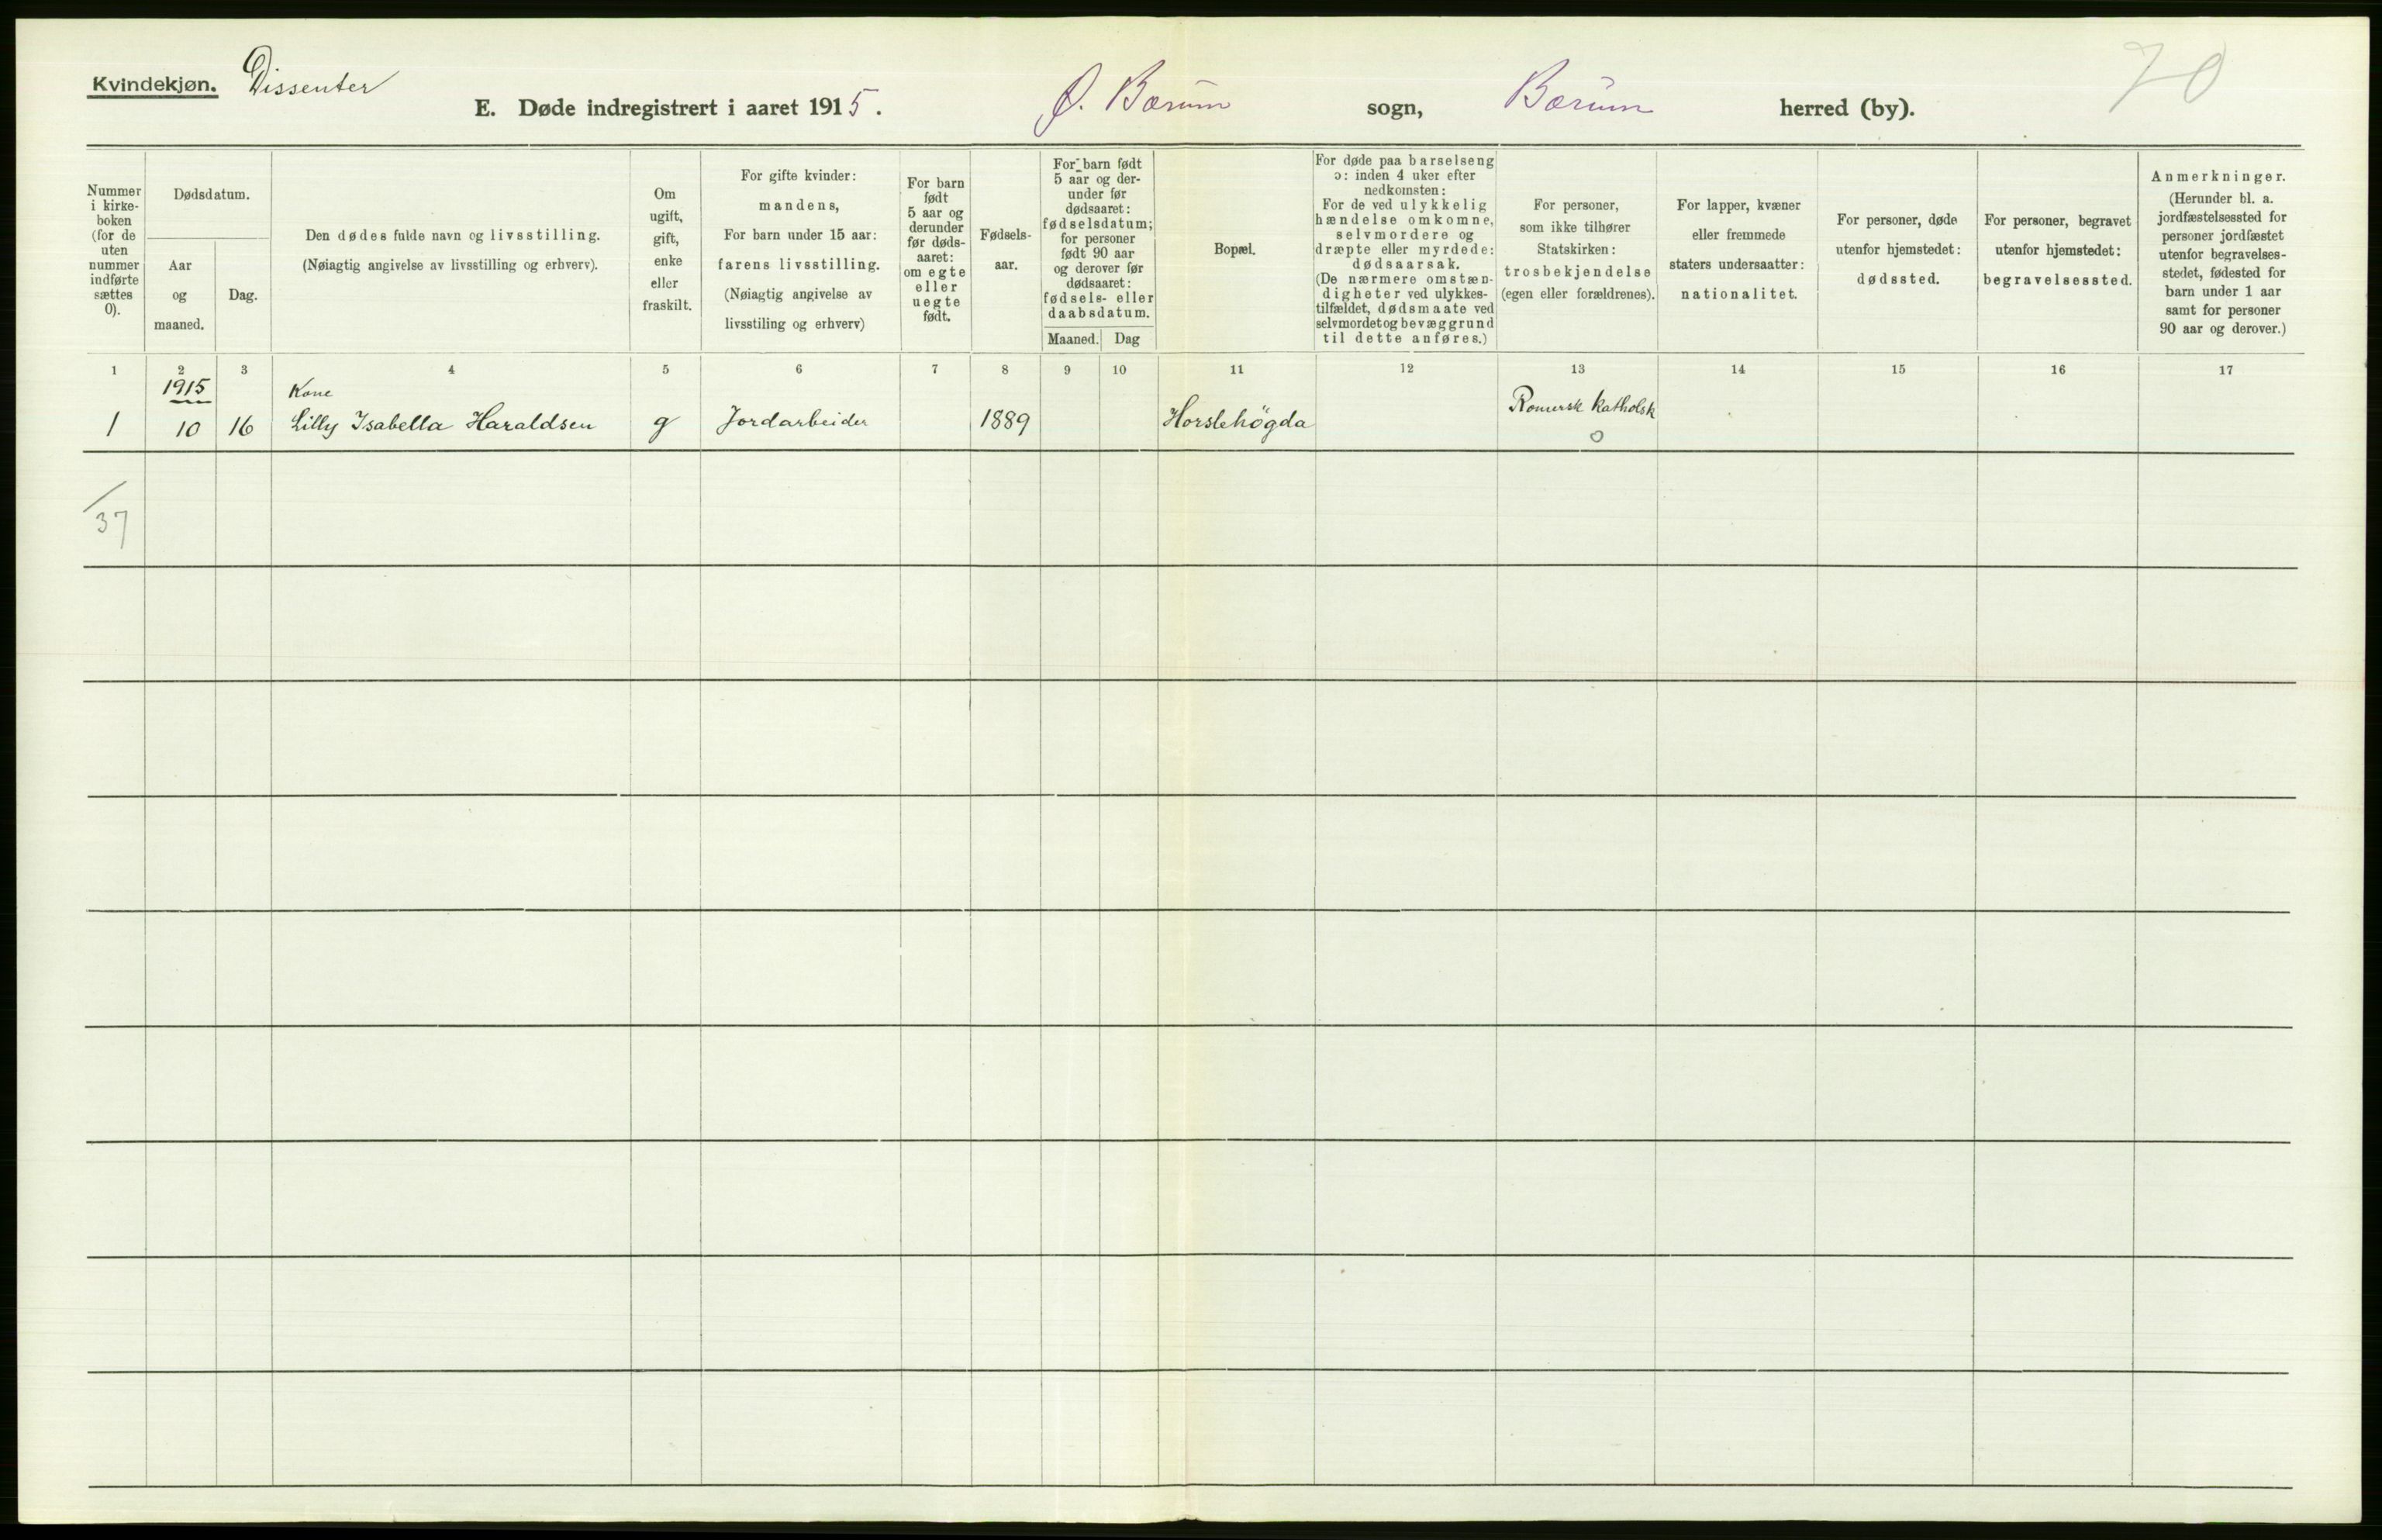 Kvindekjøn. Dissenter
70
E. Døde indregistrert i aaret 1915. Ø. Bærum sogn, Bærum herred (by).
Nummer
i kirke-
boken
(for de
uten
nummer
indførte
sættes
0).
Dødsdatum.
Aar
og
maaned.
Dag.
Den dødes fulde navn og livsstilling.
(Nøiagtig angivelse av livsstilling og erhverv).
Om
ugift,
gift,
enke
eller
fraskilt.
For gifte kvinder:
mandens,
For barn under 15 aar:
farens livsstilling.
(Nøiagtig angivelse av
livsstiling og erhverv)
For barn
født
5 aar og
derunder
før døds-
aaret:
om egte
eller
uegte
født.
Fødsels-
aar.
For barn født
5 aar og der-
under før
dødsaaret:
fødselsdatum;
for personer
født 90 aar
og derover før
dødsaaret:
fødsels- eller
daabsdatum.
Maaned. Dag
Bopæl.
For døde paa barselseng
ɔ: inden 4 uker efter
nedkomsten:
For de ved ulykkelig
hændelse omkomne,
selvmordere og
dræpte eller myrdede:
dødsaarsak.
(De nærmere omstæn-
digheter ved ulykkes-
tilfældet, dødsmaate ved
selvmordet og bevæggrund
til dette anføres.)
For personer,
som ikke tilhører
Statskirken:
trosbekjendelse
(egen eller forældrenes).
For lapper, kvæner
eller fremmede
staters undersaatter:
nationalitet.
For personer, døde
utenfor hjemstedet:
dødssted.
For personer, begravet
utenfor hjemstedet:
begravelsessted.
Anmerkninger.
(Herunder bl. a.
jordfæstelsessted for
personer jordfæstet
utenfor begravelses-
stedet, fødested for
barn under 1 aar
samt for personer
90 aar og derover.)
1 2 3 4 5 6 7 8 9 10 11 12 13 14 15 16 17
1915 Kone Romersk Katholsk
1 10 16 Lilly Isabella Haraldsen g Jordarbeider 1889 Horslehögda
0
37